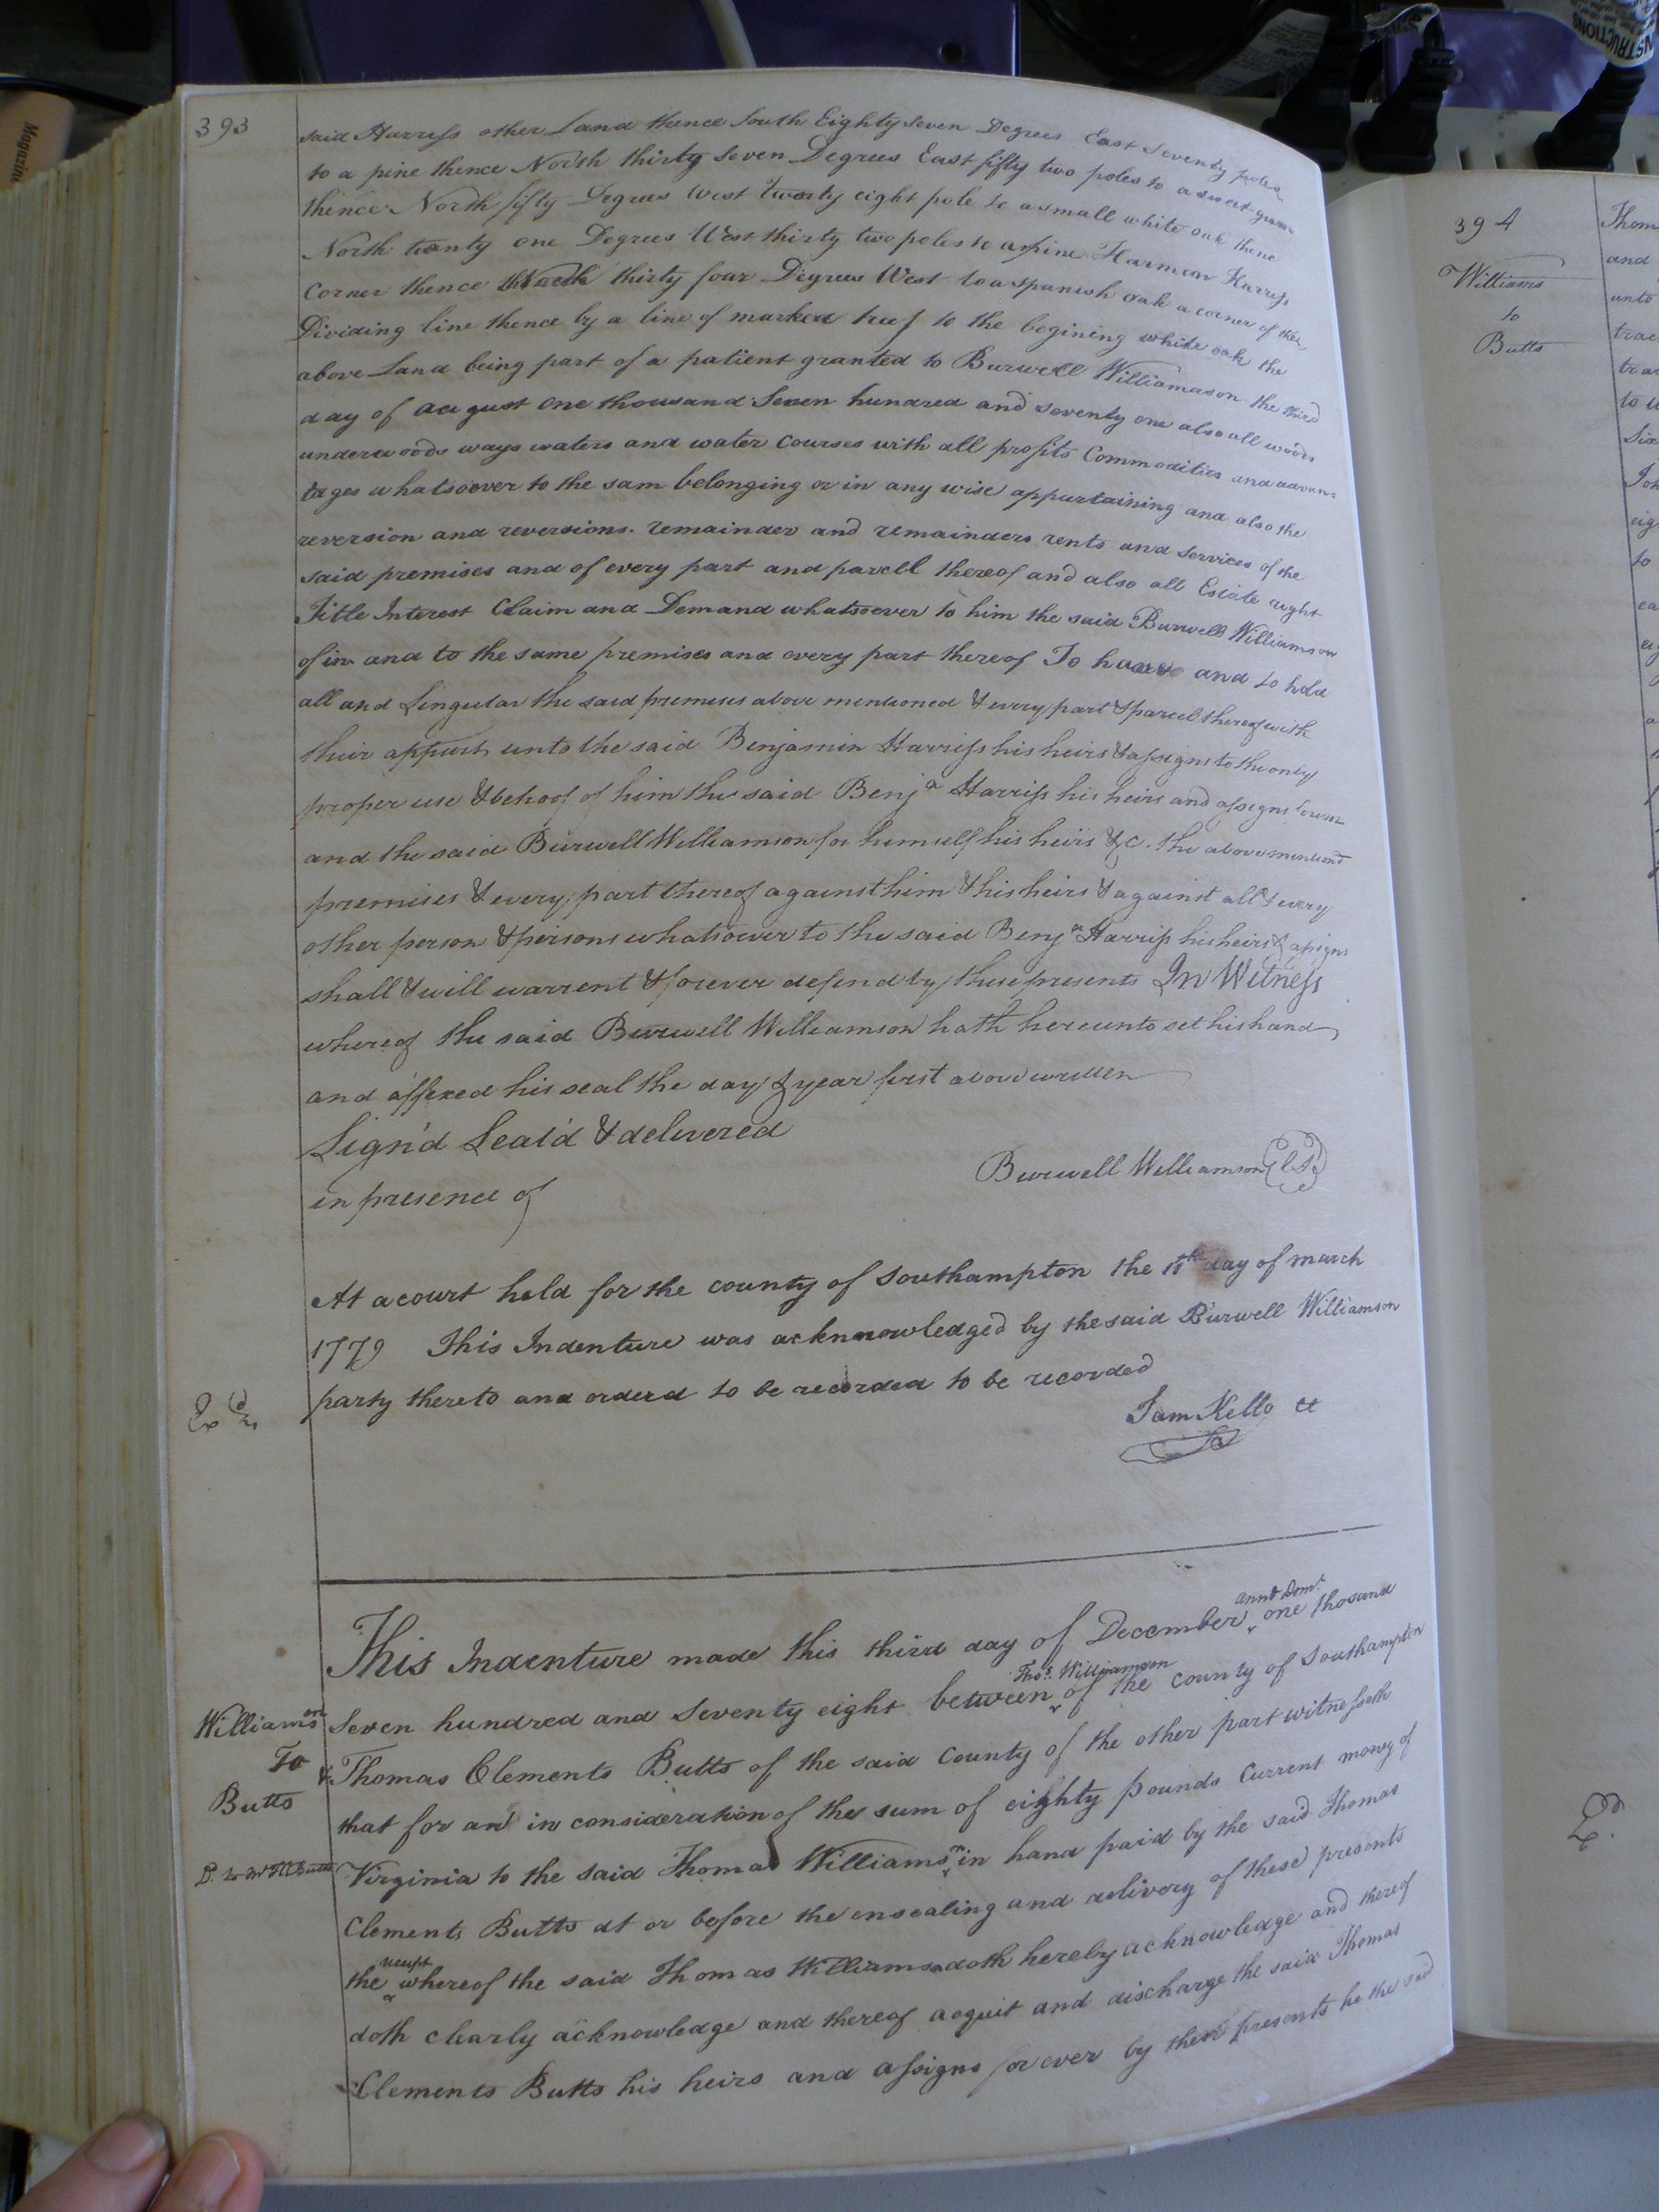 393
said Harriss other Land thence South Eighty Seven Degrees East Seventy poles
to a pine thence North thirty Seven Degrees East fifty two poles to a sweet gum
thence North fifty Degrees West Twenty eight pole to a small white oak thence
North twenty one Degrees West thirty two poles to a pine Harmon Harriss
Corner thence North thirty four Degrees West to a spanish oak a corner of the
Dividing line thence by a line of marked trees to the begining white oak the
above Land being part of a patient granted to Burwell Williamason the third
day of august one thousand Seven hundred and seventy one also all woods
underwoods ways waters and water courses with all profits Commodities and advan=
tages whatsoever to the sam belonging or in any wise appurtaining and also the
reversion and reversions. remainder and remainders rents and services of the
said premises and of every part and parcell thereof and also all Estate right
Title Interest Claim and Demand whatsoever to him the said Burwell Williamson
of in and to the same premises and every part thereof To have and to hold
all and Singular the said premises above mentioned & every part & parcel thereof with
their appurts unto the said Benjamin Harriss his heirs & assigns to the only
proper use & behoof of him the said Benja Harriss his heirs and assigns forever
and the said Burwell Williamson for himself his heirs &c. the above mentiond
premises & every part thereof against him & his heirs & against all & every
other person & persons whatsoever to the said Benja Harriss his heirs & assigns
shall & will warrent & forever defend by these presents In Witness
whereof the said Burwell Williamson hath hereunto set his hand
and affixed his seal the day & year first above written
Sign'd Seal'd & delivered
in presence of
Burwell Williamson LS
At a court held for the county of Southampton the 11th day of march
1779 This Indenture was acknowledged by the said Burwell Williamson
party thereto and orderd to be recorded to be recorded
Exd
Sam Kello
This Indenture made this third day of December annõ Dom: one thosand
Williamson Seven hundred and Seventy eight between Thos. Williamson of the county of Southampton
To & Thomas Clements Butts of the said County of the other part witnesseth
Butts that for and in consideration of the sum of eighty pounds Current money of
Virginia to the said Thomas Williamson in hand paid by the said Thomas
Clements Butts at or before the ensealing and delivery of these presents
the receipt whereof the said Thomas Williamson doth hereby acknowledge and thereof
doth clearly acknowledge and thereof acquit and discharge the said Thomas
Clements Butts his heirs and assigns for ever by these presents he the said
394
Williams
to
Butts
Thom
and
unto
trac
tra
to
Six
Joh
eig
to